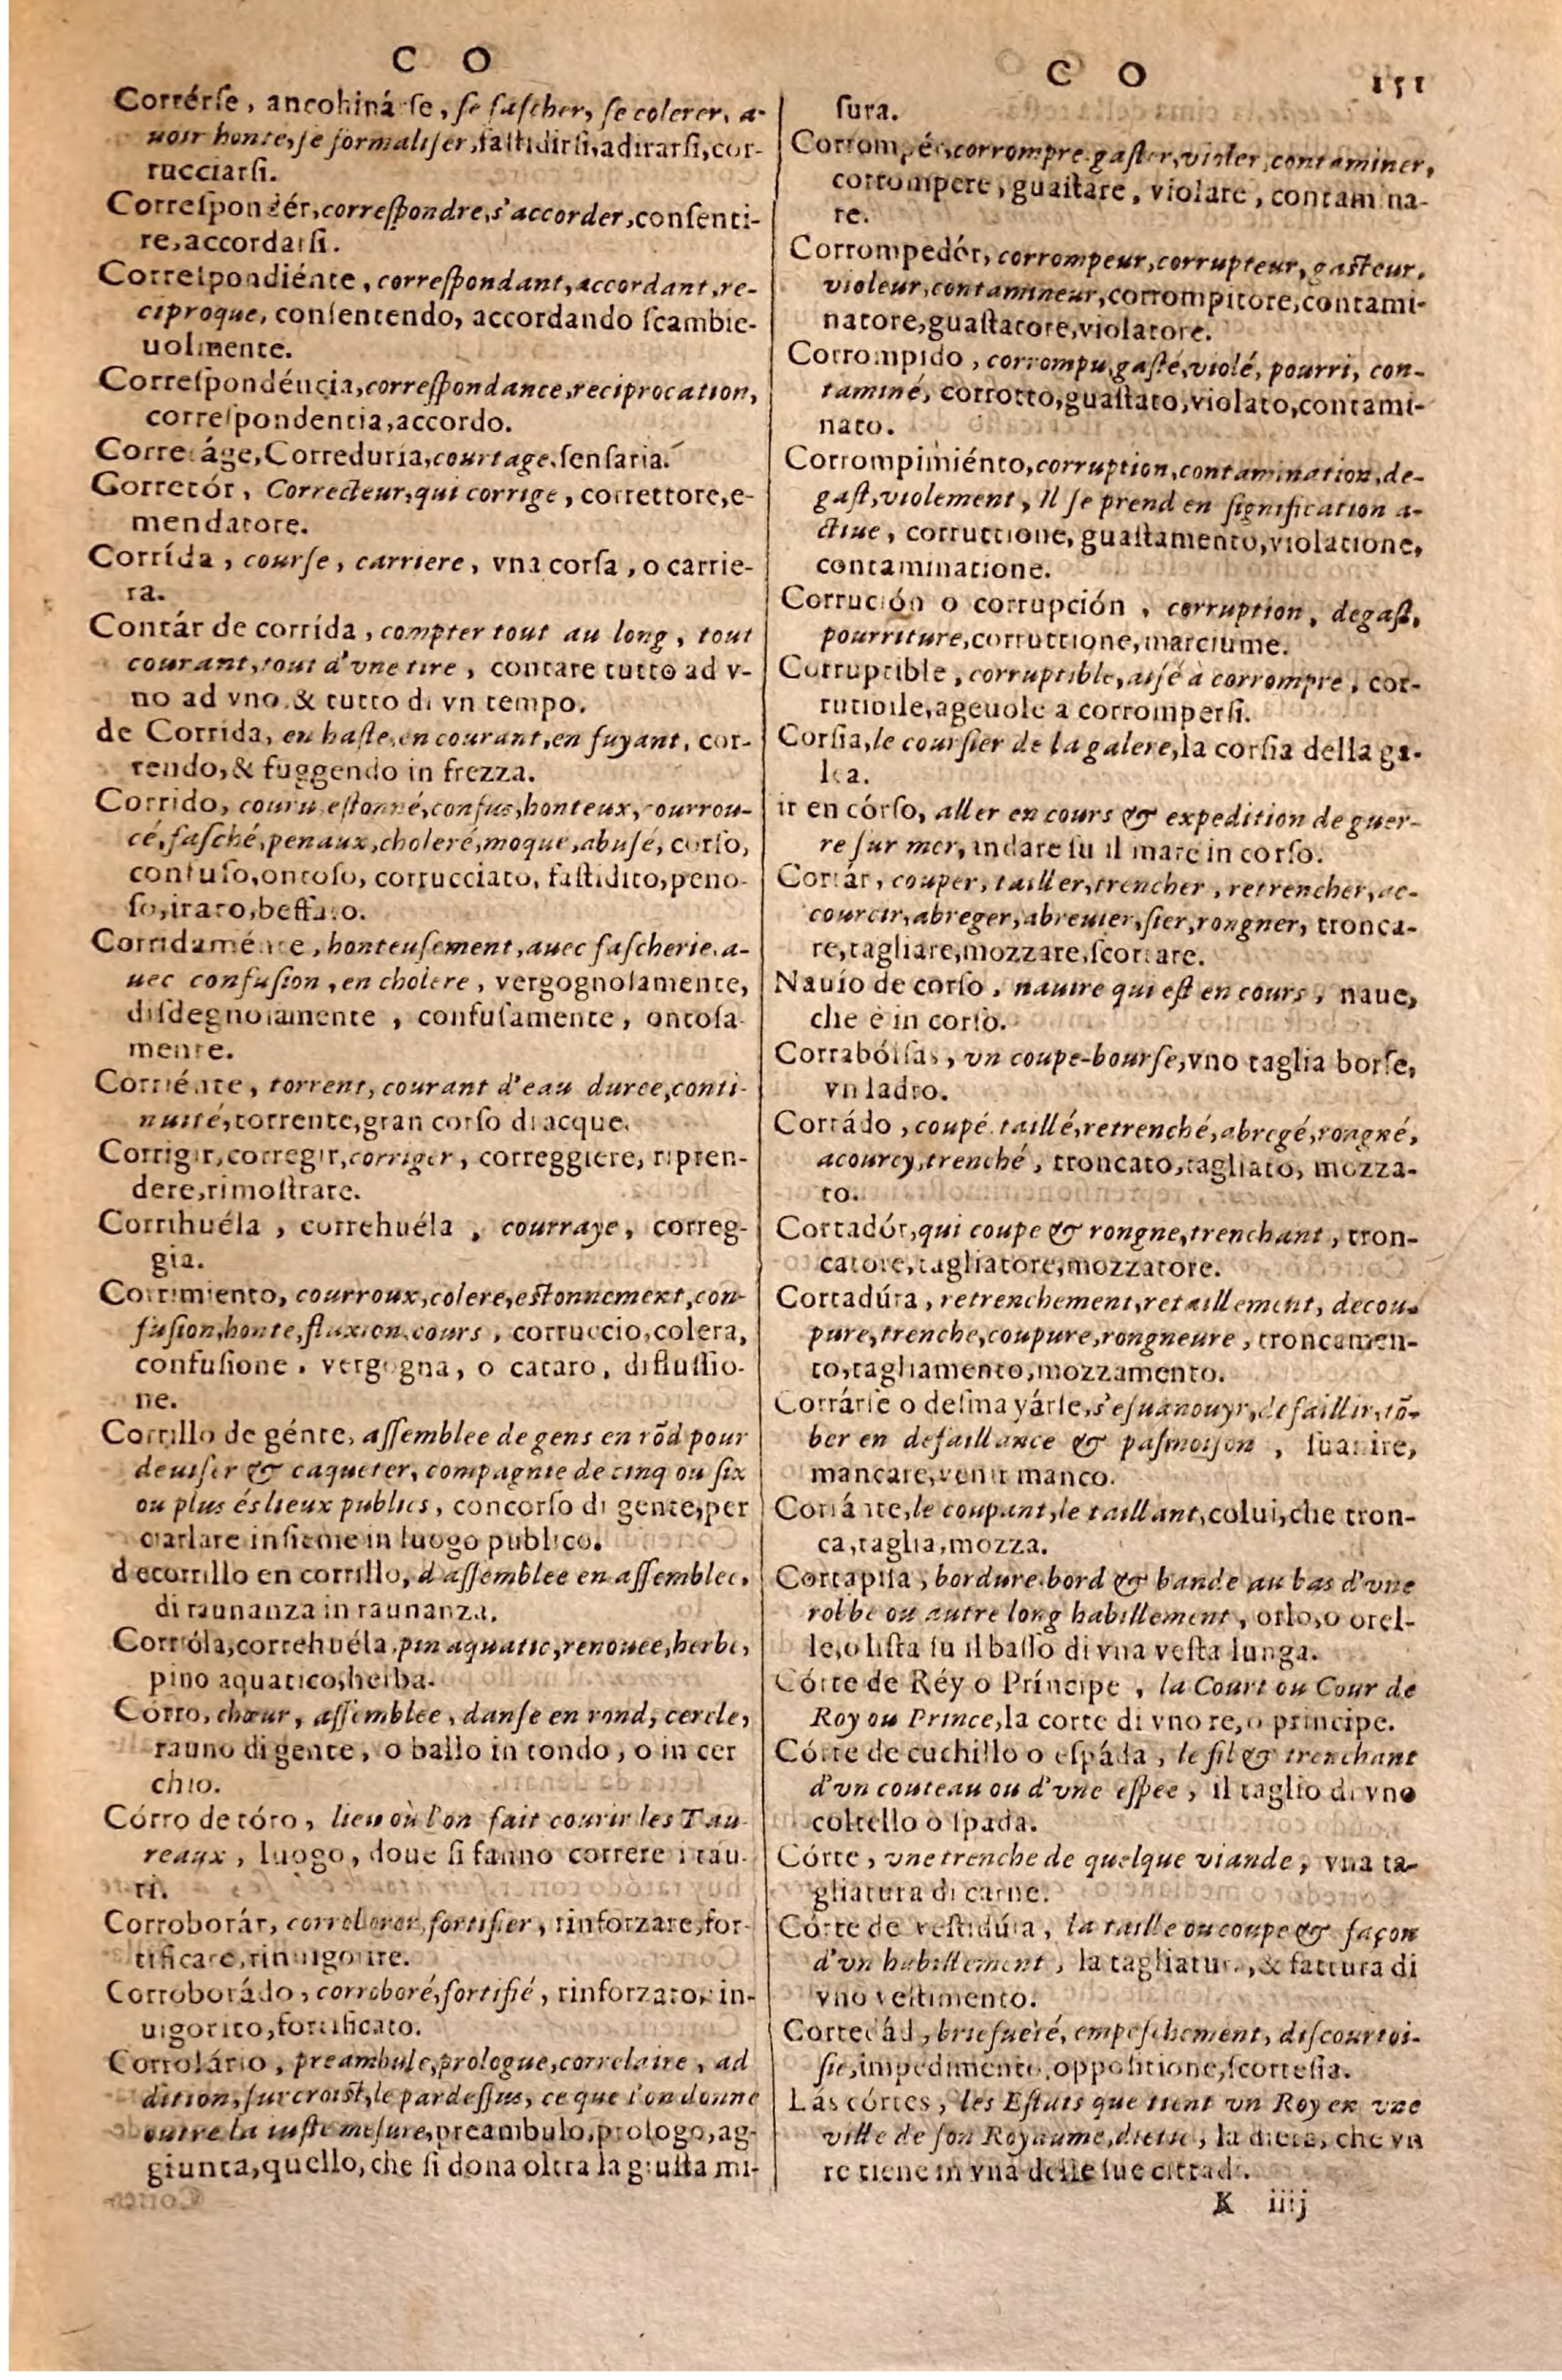 C O
Corrérſe, ancohinárſe, ſe faſcher, ſe colerer, a-
uoir honte, ſe formaliſer, faſtidirſi, adirarſi, cor-
rucciarſi.
Correſpondér, correſpondre, s'accorder, conſenti-
re, accordarſi.
Correſpondiénte, correſpondant, accordant, re-
ciproque, conſentendo, accordando ſcambie-
uolmente.
Correſpondéncia, correſpondance, reciprocation,
correſpondentia, accordo.
Corretáge, Correduría, courtage, ſenſaria.
Corretór, Correcteur, qui corrige, correttore, e-
mendatore.
Corrída, courſe, carriere, vna corſa, o carrie-
ra.
Contár de corrída, compter tout au long, tout
courant, tout d'vne tire, contare tutto ad v-
no ad vno, & tutto di vn tempo.
de Corrida, en haſte, en courant, en fuyant, cor-
rendo, & fuggendo in frezza.
Corrido, couru, eſtonné, confus, honteux, courrou-
cé, faſché, penaux, choleré, moque, abuſé, corſo,
confuſo, ontoſo, corrucciato, faſtidito, peno-
ſo, irato, beffato.
Corridaménte, honteuſement, auec faſcherie, a-
uec confuſion, en cholere, vergognoſamente,
diſdegnoſamente, confuſamente, ontoſa-
mente.
Corriénte, torrent, courant d'eau durce, conti-
nuité, torrente, gran corſo di acque.
Corrigir, corregir, corriger, correggiere, ripren-
dere, rimoſtrare.
Corrihuéla, correhuéla, courraye, correg-
gia.
Corrimiento, courroux, colere, eſtonnement, con-
fuſion, honte, fluxion, cours, corruccio, colera,
confuſione, vergogna, o cataro, difluſſio-
ne.
Corrillo de génte, aſſemblee de gens en rõd pour
deuiſer & caqueter, compagnie de cinq ou ſix
ou plus és lieux publics, concorſo di gente, per
ciarlare inſieme in luogo publico.
de corrillo en corrillo, d'aſſemblee en aſſemblee,
di raunanza in raunanza.
Corróla, correhuéla, pin aquatic, renouee, herbe,
pino aquatico, herba.
Córro, chœur, aſſemblee, danſe en rond, cercle,
rauno di gente, o ballo in tondo, o in cer
chio.
Córro de tóro, lieu où l'on fait courir les Tau-
reaux, luogo, doue ſi fanno correre i tau-
ri.
Corroborár, corroborer, fortifier, rinforzare, for-
tificare, rinuigorire.
Corroborádo, corroboré, fortifié, rinforzato, in-
uigorito, fortificato.
Corrolário, preambule, prologue, correlaire, ad
dition, ſurcroiſt, le pardeſſus, ce que l'on donne
outre la iuſte meſure, preambulo, prologo, ag-
giunta, quello, che ſi dona oltra la giuſta mi-
C O 151
ſura.
Corrompér, corrompre, gaſter, violer, contaminer,
corrompere, guaſtare, violare, contamina-
re.
Corrompedór, corrompeur, corrupteur, gaſteur,
violeur, contamineur, corrompitore, contami-
natore, guaſtatore, violatore.
Corrompido, corrompu, gaſté, violé, pourri, con-
taminé, corrotto, guaſtato, violato, contami-
nato.
Corrompimiénto, corruption, contamination, de-
gaſt, violement, Il ſe prend en ſignification a-
ctiue, corruttione, guaſtamento, violatione,
contaminatione.
Corrución o corrupción, corruption, degaſt,
pourriture, corruttione, marciume.
Corruptible, corruptible, aiſé à corrompre, cor-
ruttibile, ageuole a corromperſi.
Corſia, le courſier de la galere, la corſia della ga-
lea.
ir en córſo, aller en cours & expedition de guer-
re ſur mer, andare ſu il mare in corſo.
Cortár, couper, tailler, trencher, retrencher, ac-
courcir, abreger, abreuier, ſier, rongner, tronca-
re, tagliare, mozzare, ſcortare.
Nauío de corſo, nauire qui eſt en cours, naue,
che è in corſo.
Cortabólſas, vn coupe-bourſe, vno taglia borſe,
vn ladro.
Cortádo, coupé, taillé, retrenché, abregé, rongné,
acourcy, trenché, troncato, tagliato, mozza-
to.
Cortadór, qui coupe & rongne, trenchant, tron-
catore, tagliatore, mozzatore.
Cortadúra, retrenchement, retaillement, decou-
pure, trenche, coupure, rongneure, troncamen-
to, tagliamento, mozzamento.
Cortárſe o deſmayárſe, s'eſuanouyr, defaillir, tõ-
ber en defaillance & paſmoiſon, ſuanire,
mancare, venir manco.
Cortánte, le coupant, le taillant, colui, che tron-
ca, taglia, mozza.
Cortapiſa, bordure, bord & bande au bas d'vne
robbe ou autre long habillement, orlo, o orel-
le, o liſta ſu il baſſo di vna veſta lunga.
Córte de Réy o Príncipe, la Court ou Cour de
Roy ou Prince, la corte di vno re, o principe.
Córte de cuchillo o eſpáda, le fil & trenchant
d'vn couteau ou d'vne eſpee, il taglio di vno
coltello o ſpada.
Córte, vne trenche de quelque viande, vna ta-
gliatura di carne.
Córte de veſtidúra, la taille ou coupe & façon
d'vn habillement, la tagliatura, & fattura di
vno veſtimento.
Cortedád, briefueté, empeſchement, diſcourtoi-
ſie, impedimento, oppoſitione, ſcorteſia.
Lás córtes, les Eſtats que tient vn Roy en vne
ville de ſon Royaume, diette, la dieta, che vn
re tiene in vna delle ſue cittadi.
K iiij